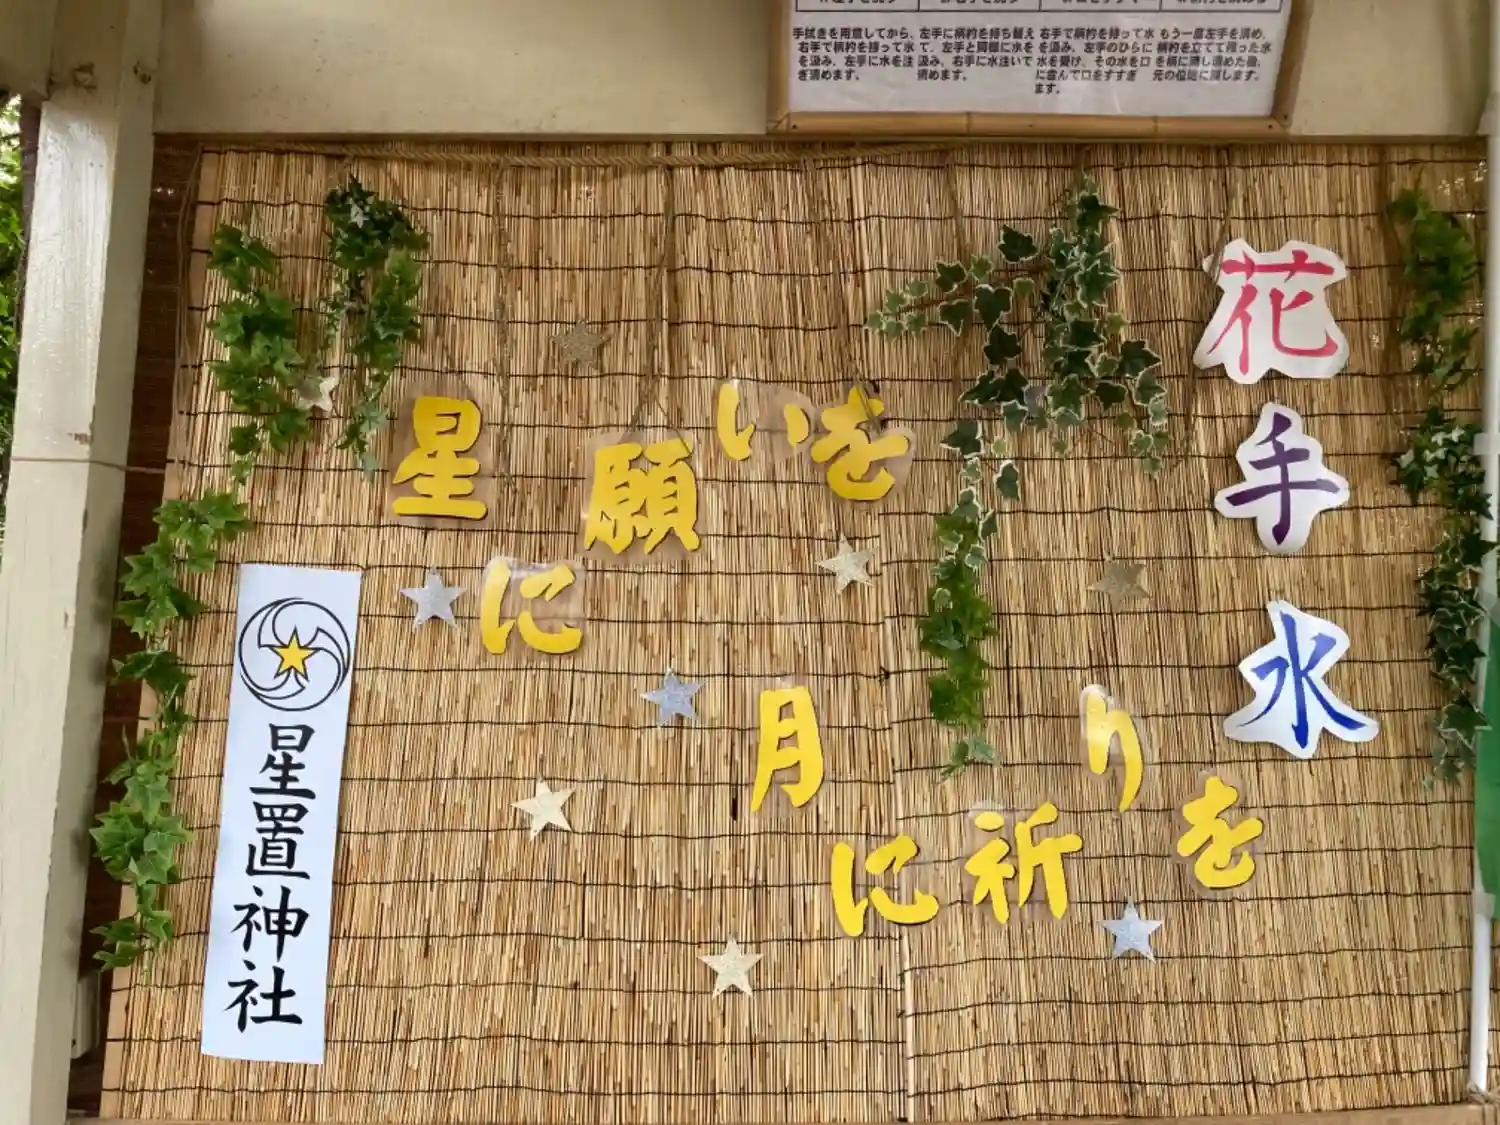 手拭きを用意してから、右手で柄杓を持って水を汲み、左手に水を注ぎ清めます。
左手に柄杓を持ち替えて、左手と同様に水を汲み、右手に水注いで清めます。
右手で柄杓を持って水を汲み、左手のひらに水を受け、その水を口に含んで口をすすぎます。
もう一度左手を清め、柄杓を立てて残った水を柄に流し清めた後、元の位置に戻します。
花手水
星に
願いを
月に
祈りを
星置神社